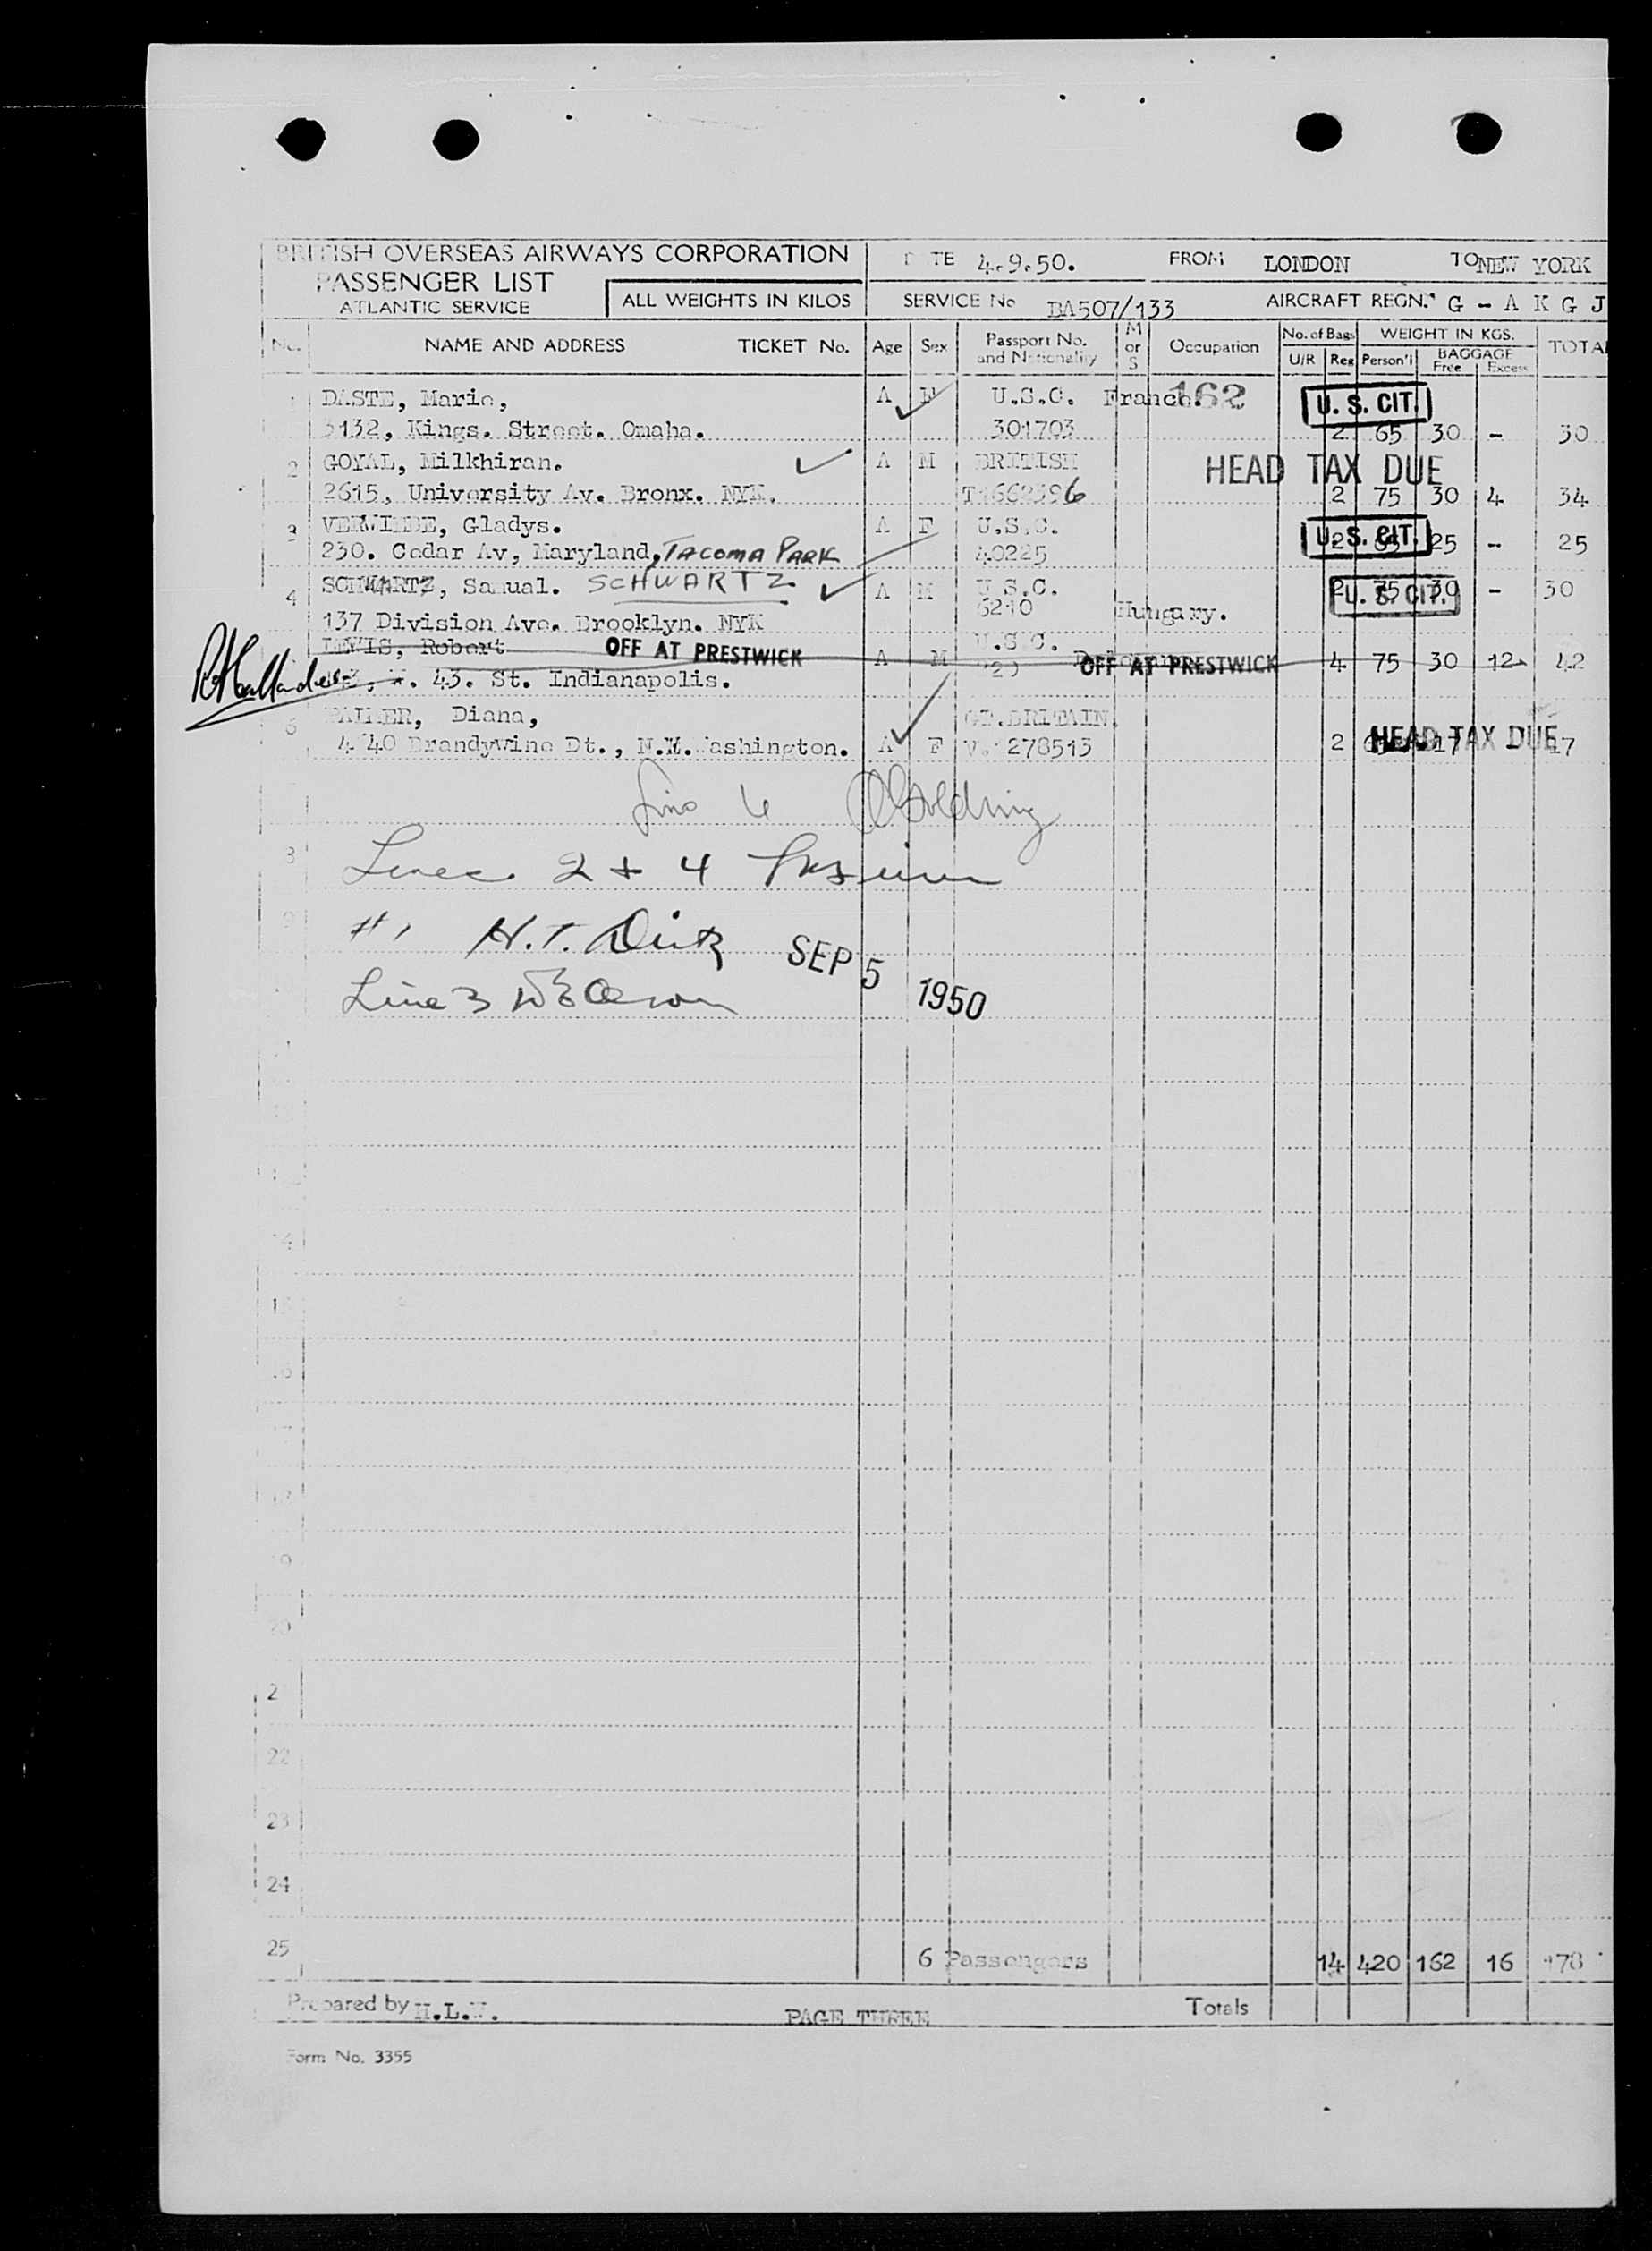 BRITISH OVERSEAS AIRWAYS CORPORATION
PASSENGER LIST
ATLANTIC SERVICE
ALL WEIGHTS IN KILOS
DATE 4.9.50. FROM LONDON TO NEW YORK
SERVICE No BA507/133 AIRCRAFT REGN. G - A K G J
No. NAME AND ADDRESS TICKET No. Age Sex Passport No. and Nationality M or S Occupation No. of Bags U/R Reg WEIGHT IN KGS. Person'l BAGGAGE Free Excess TOTAL
1 DASTE, Marie, A F U.S.C. France. 162 U. S. CIT.
3132, Kings. Street. Omaha. 301703 2 65 30 - 30
2 GOYAL, Milkhiran. A M BRITISH HEAD TAX DUE
2615, University Av. Bronx. NYK. 2 75 30 4 34
3 Gladys. A F U.S.C. U. S. CIT.
230. Cedar Av, Maryland, TACOMA PARK 40225 2 25 - 25
4 SCHWARTZ, Samual. SCHWARTZ A M U.S.C. 2 75 30 - 30 U. S. CIT.
137 Division Ave. Brooklyn. NYK 6210 Hungary.
LEWIS, Robert OFF AT PRESTWICK A M U.S.C. OFF AT PRESTWICK 4 75 30 12 42
43. St. Indianapolis.
6 PALMER, Diana, GT.BRITAIN
Brandywine Dt., N.W.Washington. A F 278513 2 17 HEAD TAX DUE 17
Line 6 Golding
Lines 2 + 4
8
#1 H.T.
9
SEP 5 1950
Line 3
14
15
16
19
20
21
22
23
24
25 6 Passengers 14 420 162 16 178
Prepared by PAGE THREE Totals
Form No. 3355